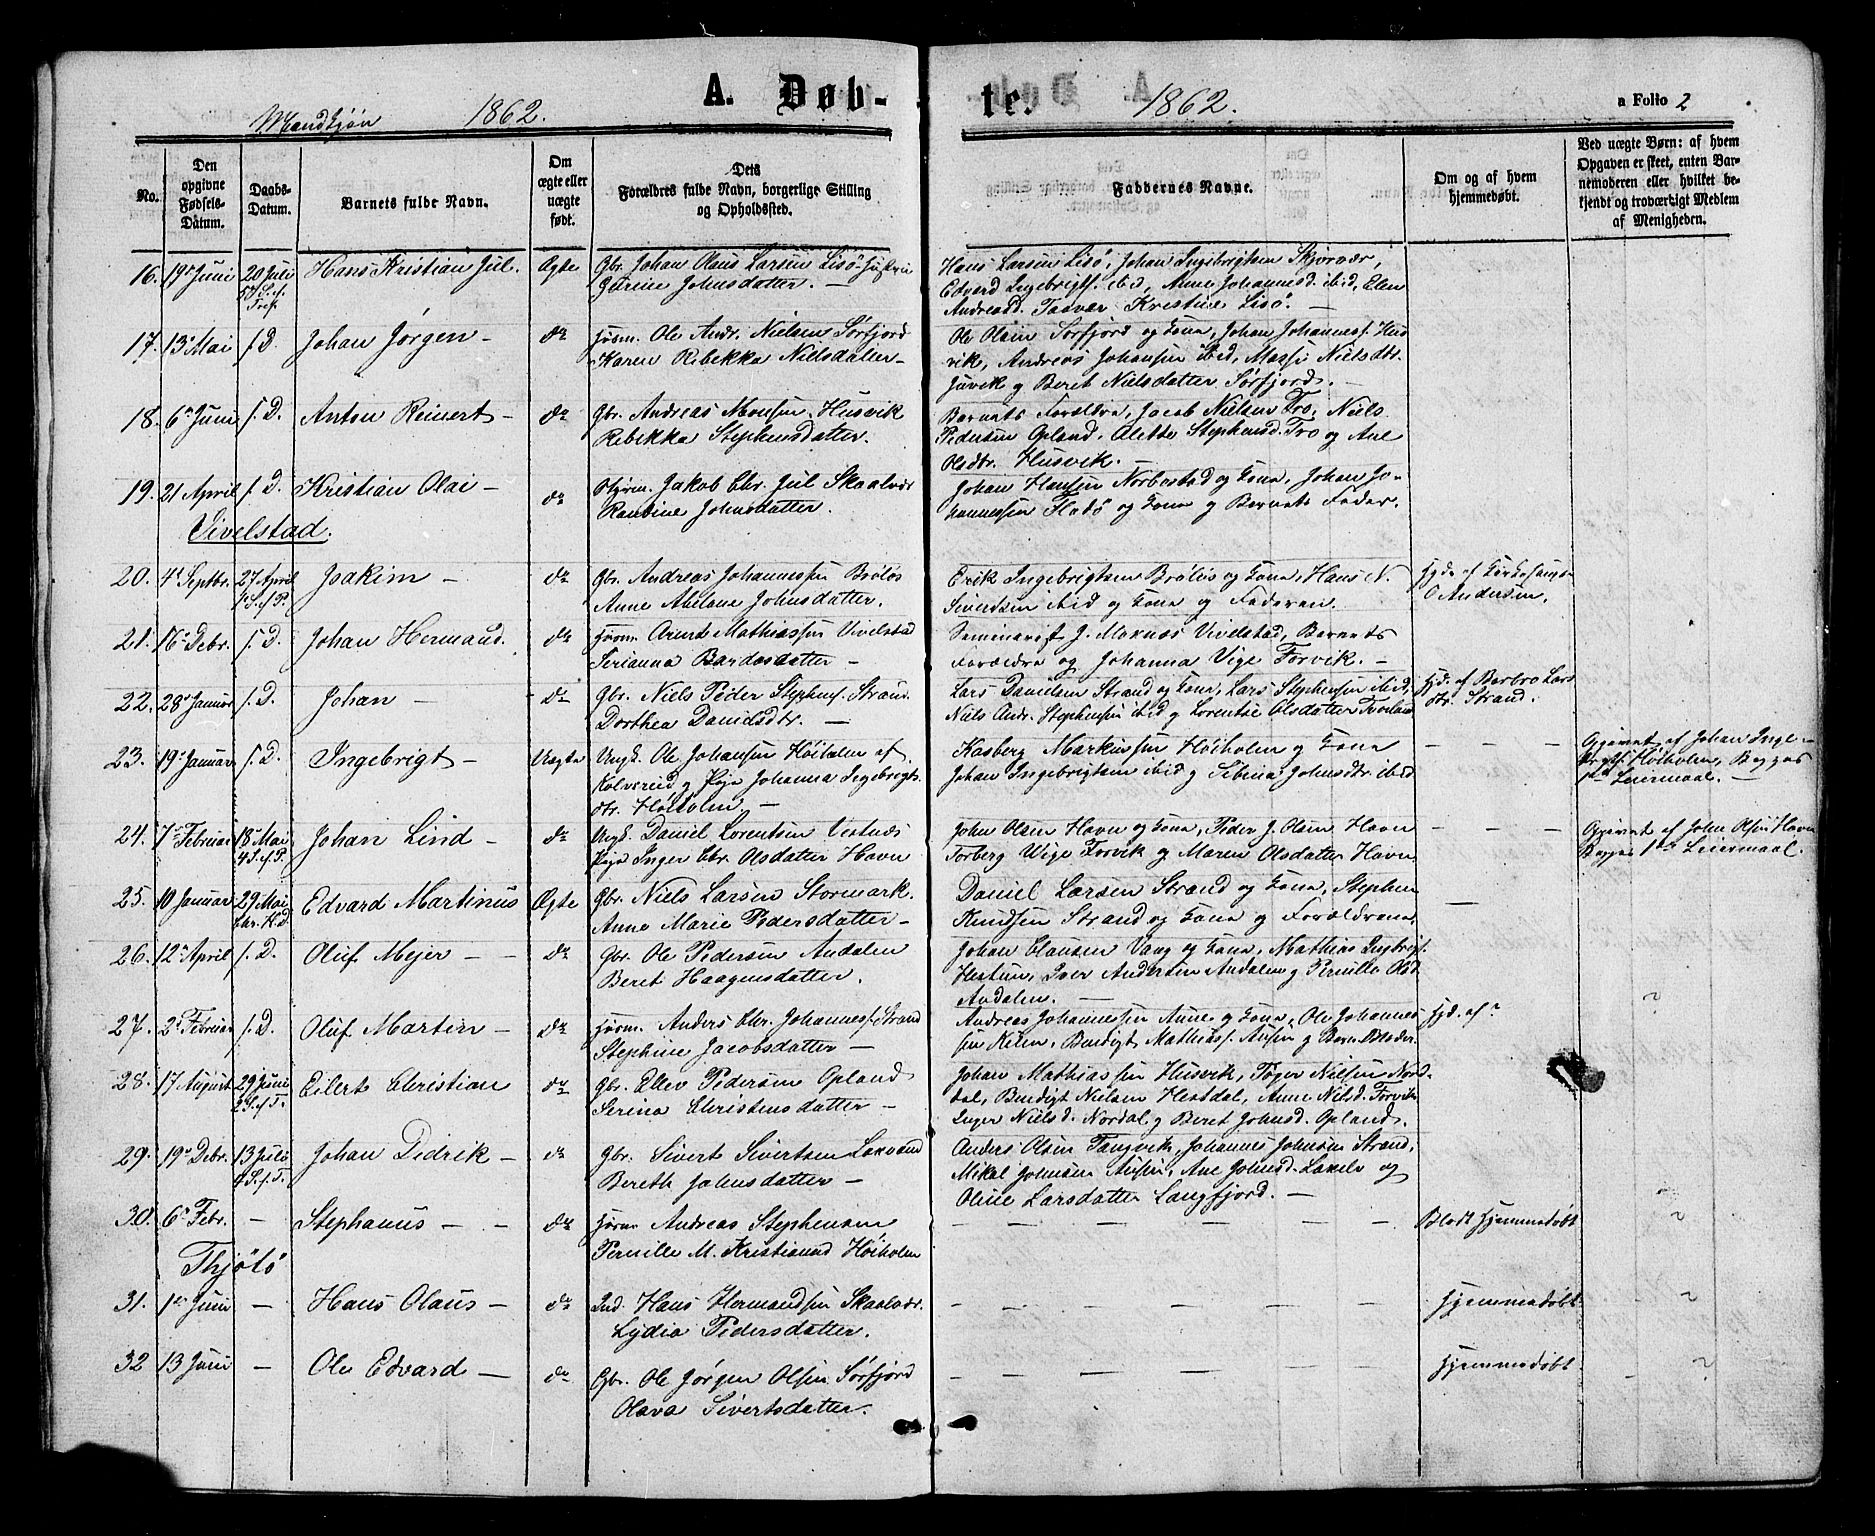 A. Døb-
te.
Mandkjøn 1862.
1862.
a Folio 2
No.
Den
opgivne
Fødsels-
Datum.
Daabs-
Datum.
Barnets fulde Navn.
Om
ægte eller
uægte
født.
Dets
Forældres fulde Navn, borgerlige Stilling
og Opholdssted.
Faddernes Navne.
Om og af hvem
hjemmedøbt.
Ved uægte Børn: af hvem
Opgaven er skeet, enten Bar-
nemoderen eller hvilket be-
kjendt og troværdigt Medlem
af Menigheden.
16. 19de Juni 20 Juli Hans Kristian Jul. Ægte Gbr. Johan Olaus Larsen Lisö
5 S. ef. Tref. Gurine Johnsdatter. —
Hans Larsen Lisö, Johan Ingebrigtsen Skjærvær,
Edvard Ingebrigts. ibid, Anne Johannesd. ibid, Elen
Andreasd. Kristine Lisö. —
17. 13de Mai s. D. Johan Jörgen — do Ole Andr. Nielsen Sörfjord
Karen Rebekka Nielsdatter —
Ole Olsen Sörfjord og Kone, Johan Johanness. Hus
vik, Andreas Johansen ibid, Nielsdtr.
og Beret Nielsdatter Sörfjord. —
18. 6te Juni s. D. Anton Reinert — do Gbr. Andreas Monsen Husvik
Rebekka Stephensdatter.
Barnets Forældre, Jacob Nielsen Tro, Niels
Pedersen Opland, Alette Stephensd. Tro og Ane
Olsdtr. Husvik. —
19. 21 April s. D. Kristian Olai — do Jakob Chr. Jul Skaalvær
Johnsdatter.
Johan Hansen Norbostad og Kone, Johan Jo-
hannessen Flodö og Kone og Barnets Fader.
Vivelstad.
20. 4de Septbr. 27 April Joakim — do Gbr. Andreas Johannessen Bröløs
1 S. ef P. Anne Abelone Johnsdatter.
Erik Ingebrigtsen Bröløs og Kone, Hans N.
Sivertsen ibid og Kone og Faderen.
Hjd. af Kirkesanger
O Andersen.
21. 16de Debr. s. D. Johan Hermand. do Arent Mathiassen Vivelstad
Serianna Bardosdatter —
Seminarist J. Moxnæs Vivelstad, Barnets
Forældre og Johanna Vige Forvik. —
22. 28de Januar s. D. Johan — do Gbr. Niels Peder Stephens. Strand
Dorthea Danidsdtr. —
Lars Danielsen Strand og Kone, Lars Stephensen ibid,
Niels Andr. Stephensen ibid og Lorentse Olsdatter
Hjd. af Barbro Lars
dtr. Strand.
23. 19de Januar s. D. Ingebrigt — Uægte Ungk. Ole Johansen Höiholm af
Kolvereid og Pige Johanna Ingebrigts
dtr. Höiholm. —
Kasberg Markussen Höiholm og Kone
Johan Ingebrigtsen ibid og Sibina Johnsdtr. ibid
— — —
Opgivet af Johan Inge-
brigts. Höiholm, Begges
1ste Leiermaal. —
24. 7de Februar 18de Mai Johan Lind — do Ungk. Daniel Lorentsen Vestnæs
4 S. ef P. Pige Inger Chr. Olsdatter Havn
John Olsen Havn og Kone, Peder J. Olsen Havn
Torberg Wige Forvik og Maren Olsdatter Havn
— — —
Opgivet af John Olsen Havn
Begges 1ste Leiermaal.
25. 10 Januar 29 Mai Edvard Martinus Ægte Gbr. Niels Larsen Stormark.
Chr. H. D. Anne Marie Pedersdatter —
Daniel Larsen Strand og Kone, Stephen
Knudsen Strand og Kone og Forældrene,
—
26. 12te April s. D. Oluf Mejer — — do Gbr. Ole Pedersen Andalen
Beret Haagensdatter.
Johan Clausen Vang og Kone, Mathias Ingbrigts.
Hestun, Iver Andersen Andalen og Pernille Olsd.
Andalen. —
27. 2de Februar s. D. Oluf Martin — do Anders Chr. Johanness. Strand
Stephine Jacobsdatter —
Andreas Johannessen Aune og Kone, Ole Johannes
sen Kilen, Bendigt Mathiass. Ausen og Barn. Moder
Hjd. af?
28. 17 August 29 Juni Eilert Christian do Gbr. Ellev Pedersen Opland
2 S. ef T. Serina Christensdatter —
Johan Mathiassen Husvik, Toger Nielsen Nord-
dal, Bendigt Nielsen Hestdal, Anne Nilsd. Forvik
Inger Nielsd. Nordal og Beret Johnsd. Opland.
29. 19de Debr. 13 Juli Johan Didrik — do Gbr. Sivert Sivertsen Laxvand
4 S. ef T. Bereth Johnsdatter —
Anders Olsen Tangvik, Johannes Johnsen Strand,
Mikal Johnsen Ausen, Ane Johnsd. Laxelv og
Oline Larsdatter Langfjord. —
30. 6te Febr. — Stephanus — — do Andreas Stephensen
Pernille M. Kristiansd Höiholm
— — — — — —
Blodt Hjemmedøbt
Thjötö
31. 1ste Juni — Hans Olaus — do Ind. Hans Hermandsen Skaalvær.
Lydia Pedersdatter.
— — — — — —
Hjemmedøbt
32 13 Juni — Ole Edvard — do Gbr. Ole Jörgen Olsen Sörfjord
Olava Sivertsdatter.
— — — — — —
Hjemmedøbt